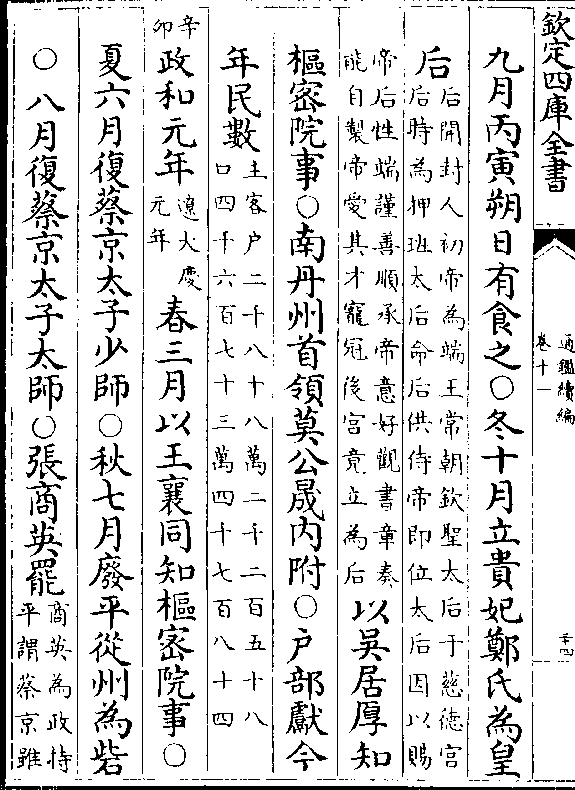 欽定四庫全書
通鑑續編
卷十一
二十四
九月丙寅朔日有食之○冬十月立貴妃鄭氏為皇
后
后開封人初帝為端王常朝欽聖太后于慈德宮
后時為押班太后命后供侍帝即位太后因以賜
帝后性端謹善順承帝意好觀書章奏
能自製帝愛其才寵冠後宮竟立為后
以吳居厚知
樞密院事○南丹州首領莫公晟内附○戶部獻今
年民數
主客户二千八十八萬二千二百五十八
口四千六百七十三萬四千七百八十四
辛
卯
政和元年
遼天慶
元年
春三月以王襄同知樞密院事○
夏六月復蔡京太子少師○秋七月廢平從州為砦
○八月復蔡京太子太師○張商英罷
商英為政持
平謂蔡京雖